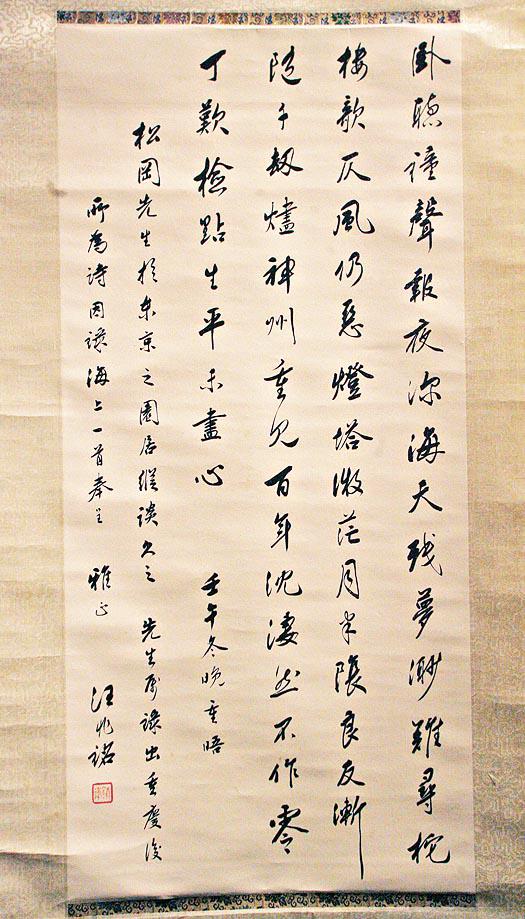 臥聽鐘聲報夜深海天殘夢渺難尋柁
樓欹仄風仍惡燈塔微茫月半陰良友漸
隨千劫燼神州重見百年沈淒然不作零
丁歎檢點生平未盡心 壬午冬晚重晤
松岡先生於東京之園居縱談久之 先生屬錄出重慶後
所為詩因錄海上一首奉呈 雅正 汪兆銘